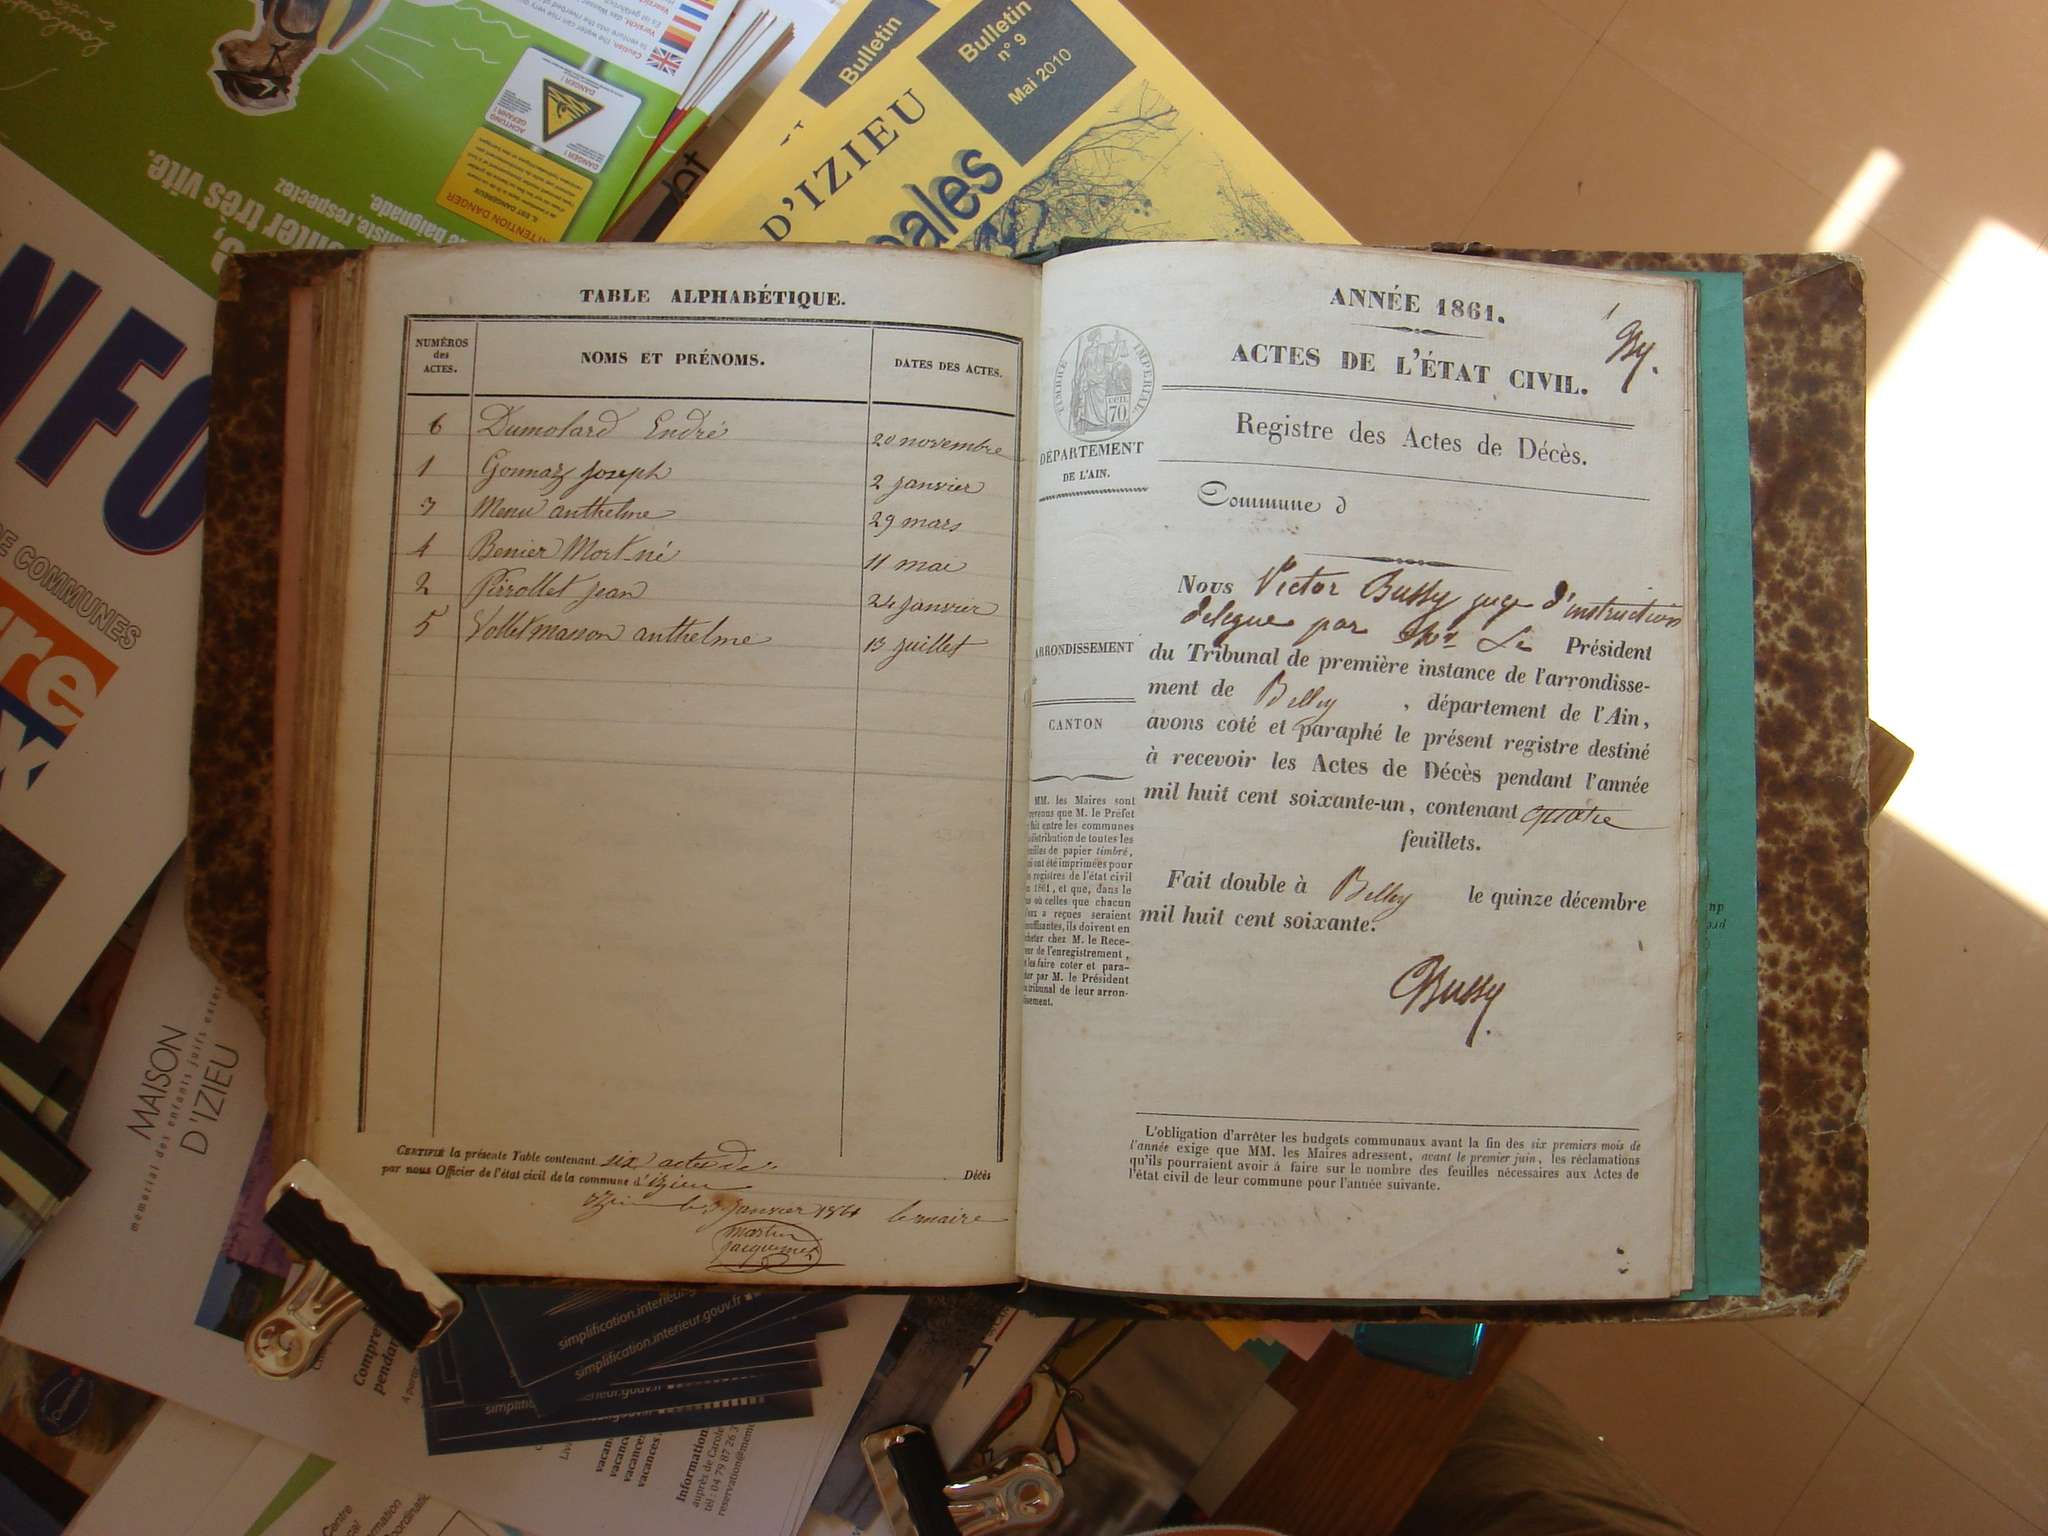 TABLE ALPHABÉTIQUE.
NUMÉROS des ACTES.
NOMS ET PRÉNOMS.
DATES DES ACTES.
6 Dumolard Endré 20 novembre
1 Gonnaz Joseph 2 janvier
3 Menu anthelme 29 mars
4 Benier Mort-né 11 mai
2 Pirrollet jean 24 janvier
5 Vollet masson anthelme 13 juillet
CERTIFIÉ la présente Table contenant six actes de Décès
par nous Officier de l'état civil de la commune d'izieu
izieu le janvier 1861 le maire
martin
jacquemet
ANNÉE 1861.
1
By.
ACTES DE L'ÉTAT CIVIL.
Registre des Actes de Décès.
TIMBRE IMPÉRIAL
cen.
70
DÉPARTEMENT
DE L'AIN.
Commune d
Nous Victor Bussy juge d'instruction
délégué par Mr Le Président
du Tribunal de première instance de l'arrondisse-
ment de Belley, département de l'Ain,
avons coté et paraphé le présent registre destiné
à recevoir les Actes de Décès pendant l'année
mil huit cent soixante-un, contenant quatre
feuillets.
Fait double à Belley le quinze décembre
mil huit cent soixante.
Bussy
ARRONDISSEMENT
CANTON
MM. les Maires sont
que M. le Préfet
fait entre les communes
distribution de toutes les
de papier timbré,
ont été imprimées pour
registres de l'état civil
1861, et que, dans le
où celles que chacun
a reçues seraient
ils doivent en
chez M. le Rece-
de l'enregistrement,
les faire coter et para-
par M. le Président
tribunal de leur arron-
L'obligation d'arrêter les budgets communaux avant la fin des six premiers mois de
l'année exige que MM. les Maires adressent, avant le premier juin, les réclamations
qu'ils pourraient avoir à faire sur le nombre des feuilles nécessaires aux Actes de
l'état civil de leur commune pour l'année suivante.
Bulletin
Bulletin
n° 9
Mai 2010
D'IZIEU
ATTENTION DANGER
DANGER !
ACHTUNG
GEFAHR !
très vite.
baignade.
respectez
NFO
DE COMMUNES
MAISON
D'IZIEU
mémorial des enfants juifs exter
simplification.interieur.gouv.fr
simplification.interieur.gouv.fr
Compre
pendan
vacance
vacance
vacances
Information
auprès de Carole
tél : 04 79 87 26 3
reservation@mem
Centre